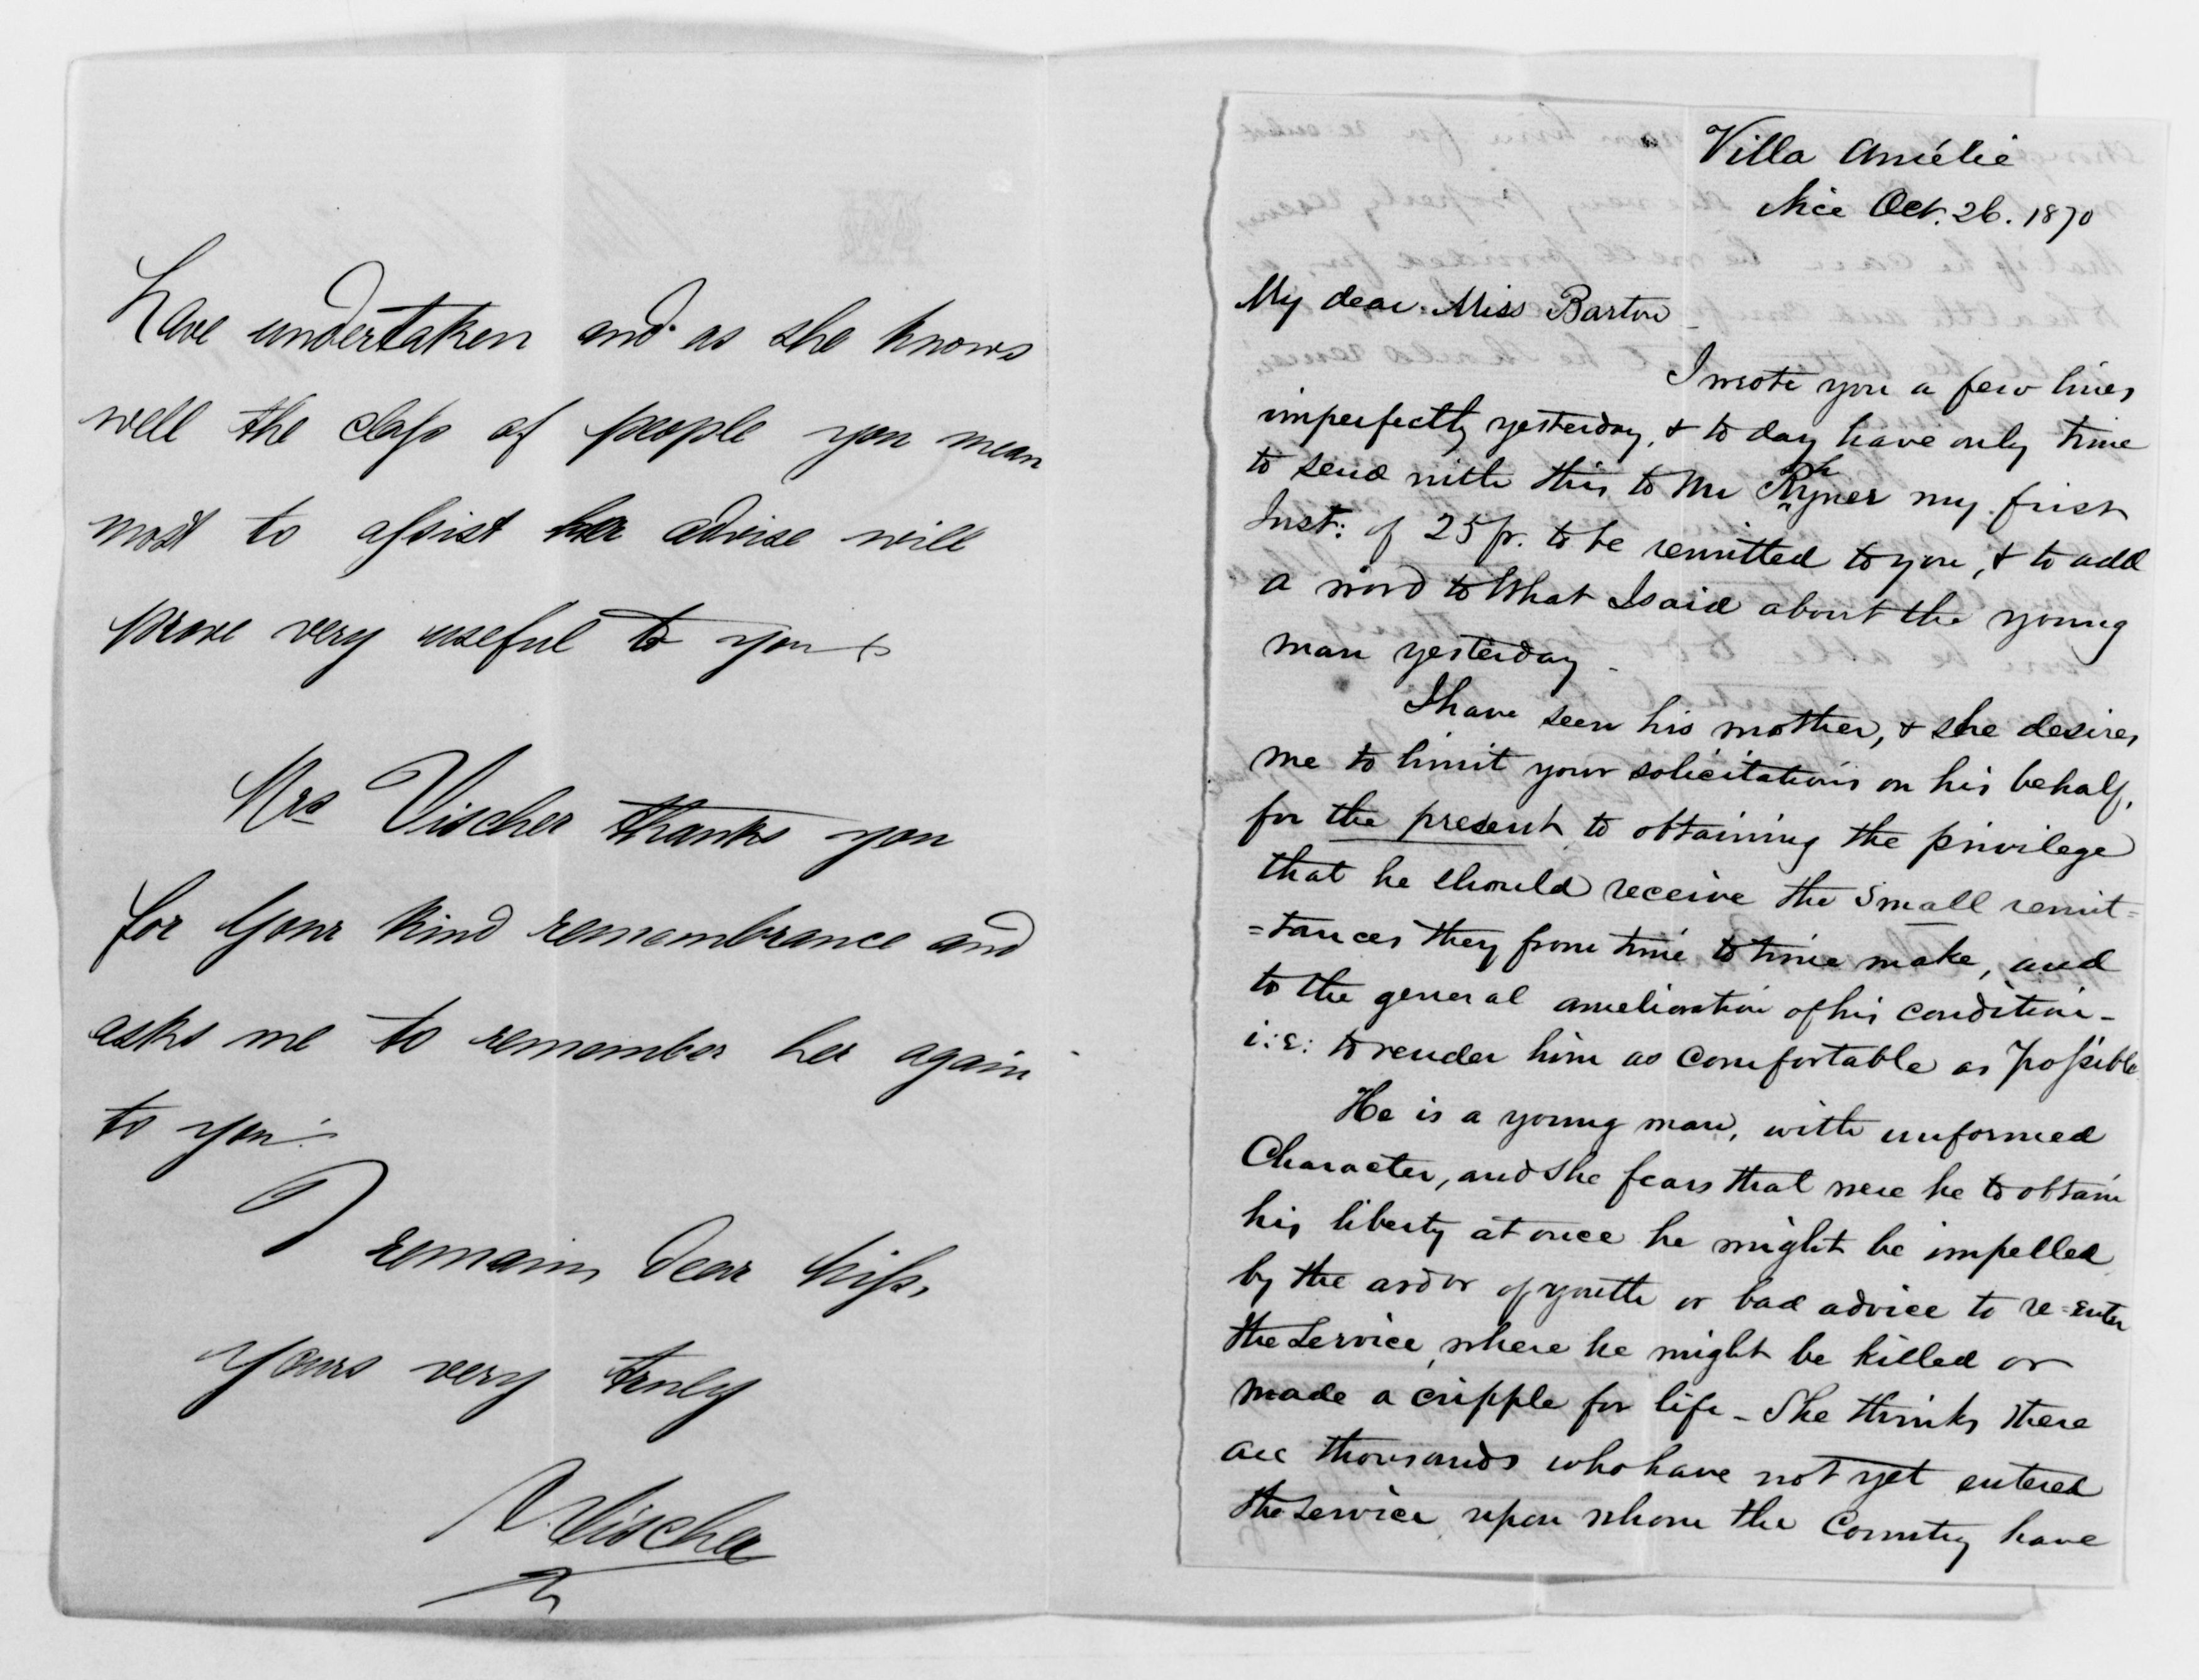 have undertaken and as she knows
well the class of people you mean
most to assist her advise will
prove very useful to you
Mrs Vischer thanks you
for your kind remembrance and
asks me to remember her again
to you.
I remain, dear Miss,
yours very truly
Vischer
Villa Amélie
Nice Oct. 26. 1870
My dear Miss Barton
I wrote you a few lines
imperfectly yesterday, & to day have only time
to send with this to Mr Rhyner my first
Inst: of 25 fr. to be remitted to you, & to add
a word to what I said about the young
man yesterday.
I have seen his mother, & she desires
me to limit your solicitations on his behalf,
for the present to obtaining the privilege
that he should receive the small remit=
=tances they from time to time make, and
to the general amelioration of his condition -
i:e: to render him as comfortable as possible
He is a young man, with unformed
Character, and she fears that were he to obtain
his liberty at once he might be impelled
by the ardor of youth or bad advice to re=enter
the service, where he might be killed or
made a cripple for life - She thinks there
are thousands who have not yet entered
the service upon whom the Country have